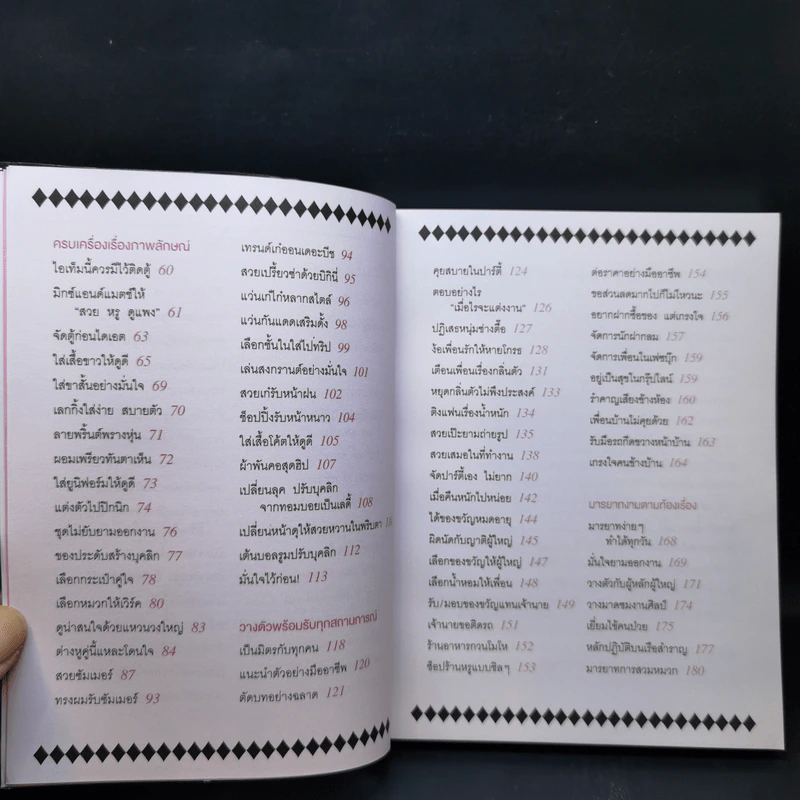 ครบเครื่องเรื่องภาพลักษณ์
ไอเท็มนี้ควรมีไว้ติดตู้ 60
มิกซ์แอนด์แมตช์ให้
"สวย หรู ดูแพง" 61
จัดตู้ก่อนไดเอต 63
ใส่เสื้อขาวให้ดูดี 65
ใส่ขาสั้นอย่างมั่นใจ 69
เลกกิ้งใส่ง่าย สบายตัว 70
ลายพริ้นต์พรางหุ่น 71
ผอมเพรียวทันตาเห็น 72
ใส่ยูนิฟอร์มให้ดูดี 73
แต่งตัวไปปิกนิก 74
ชุดไม่ยับยามออกงาน 76
ของประดับสร้างบุคลิก 77
เลือกกระเป๋าคู่ใจ 78
เลือกหมวกให้เวิร์ค 80
ดูน่าสนใจด้วยแหวนวงใหญ่ 83
ต่างหูคู่นี้แหละโดนใจ 84
สวยซัมเมอร์ 87
ทรงผมรับซัมเมอร์ 93
เทรนด์เก๋ออนเดอะบีช 94
สวยเปรี้ยวซ่าด้วยบิกินี่ 95
แว่นเก๋ไก๋หลากสไตล์ 96
แว่นกันแดดเสริมดั้ง 98
เลือกชั้นในใส่ไปทริป 99
เล่นสงกรานต์อย่างมั่นใจ 101
สวยเก๋รับหน้าฝน 102
ช็อปปิ้งรับหน้าหนาว 104
ใส่เสื้อโค้ตให้ดูดี 105
ผ้าพันคอสุดฮิป 107
เปลี่ยนลุค ปรับบุคลิก
จากทอมบอยเป็นเลดี้ 108
เปลี่ยนหน้าดุให้สวยหวานในพริบตา
เต้นบอลรูมปรับบุคลิก 112
มั่นใจไว้ก่อน! 113
วางตัวพร้อมรับทุกสถานการณ์
เป็นมิตรกับทุกคน 118
แนะนำตัวอย่างมืออาชีพ 120
ตัดบทอย่างฉลาด 121
คุยสบายในปาร์ตี้ 124
ตอบอย่างไร
"เมื่อไรจะแต่งงาน" 126
ปฏิเสธหนุ่มช่างตื๊อ 127
ง้อเพื่อนรักให้หายโกรธ 128
เตือนเพื่อนเรื่องกลิ่นตัว 131
หยุดกลิ่นตัวไม่พึงประสงค์ 133
ติงแฟนเรื่องน้ำหนัก 134
สวยเป๊ะยามถ่ายรูป 135
สวยเสมอในที่ทำงาน 138
จัดปาร์ตี้เอง ไม่ยาก 140
เมื่อคืนหนักไปหน่อย 142
ได้ของขวัญหมดอายุ 144
ผิดนัดกับญาติผู้ใหญ่ 145
เลือกของขวัญให้ผู้ใหญ่ 147
เลือกน้ำหอมให้เพื่อน 148
รับ/มอบของขวัญแทนเจ้านาย 149
เจ้านายขอติดรถ 151
ร้านอาหารกวนโมโห 152
ช็อปร้านหรูแบบชิลๆ 153
ต่อราคาอย่างมืออาชีพ 154
ขอส่วนลดมากไปก็ไม่ไหวนะ 155
อยากฝากซื้อของ แต่เกรงใจ 156
จัดการนักฝากลม 157
จัดการเพื่อนในเฟซบุ๊ก 159
อยู่เป็นสุขในกรุ๊ปไลน์ 159
รำคาญเสียงข้างห้อง 160
เพื่อนบ้านไม่คุยด้วย 162
รับมือรถกีดขวางหน้าบ้าน 163
เกรงใจคนข้างบ้าน 164
มารยาทงามตามท้องเรื่อง
มารยาทง่ายๆ
ทำได้ทุกวัน 168
มั่นใจยามออกงาน 169
วางตัวกับผู้หลักผู้ใหญ่ 171
วางมาดชมงานศิลป์ 174
เยี่ยมไข้คนป่วย 175
หลักปฏิบัติบนเรือสำราญ 177
มารยาทการสวมหมวก 180